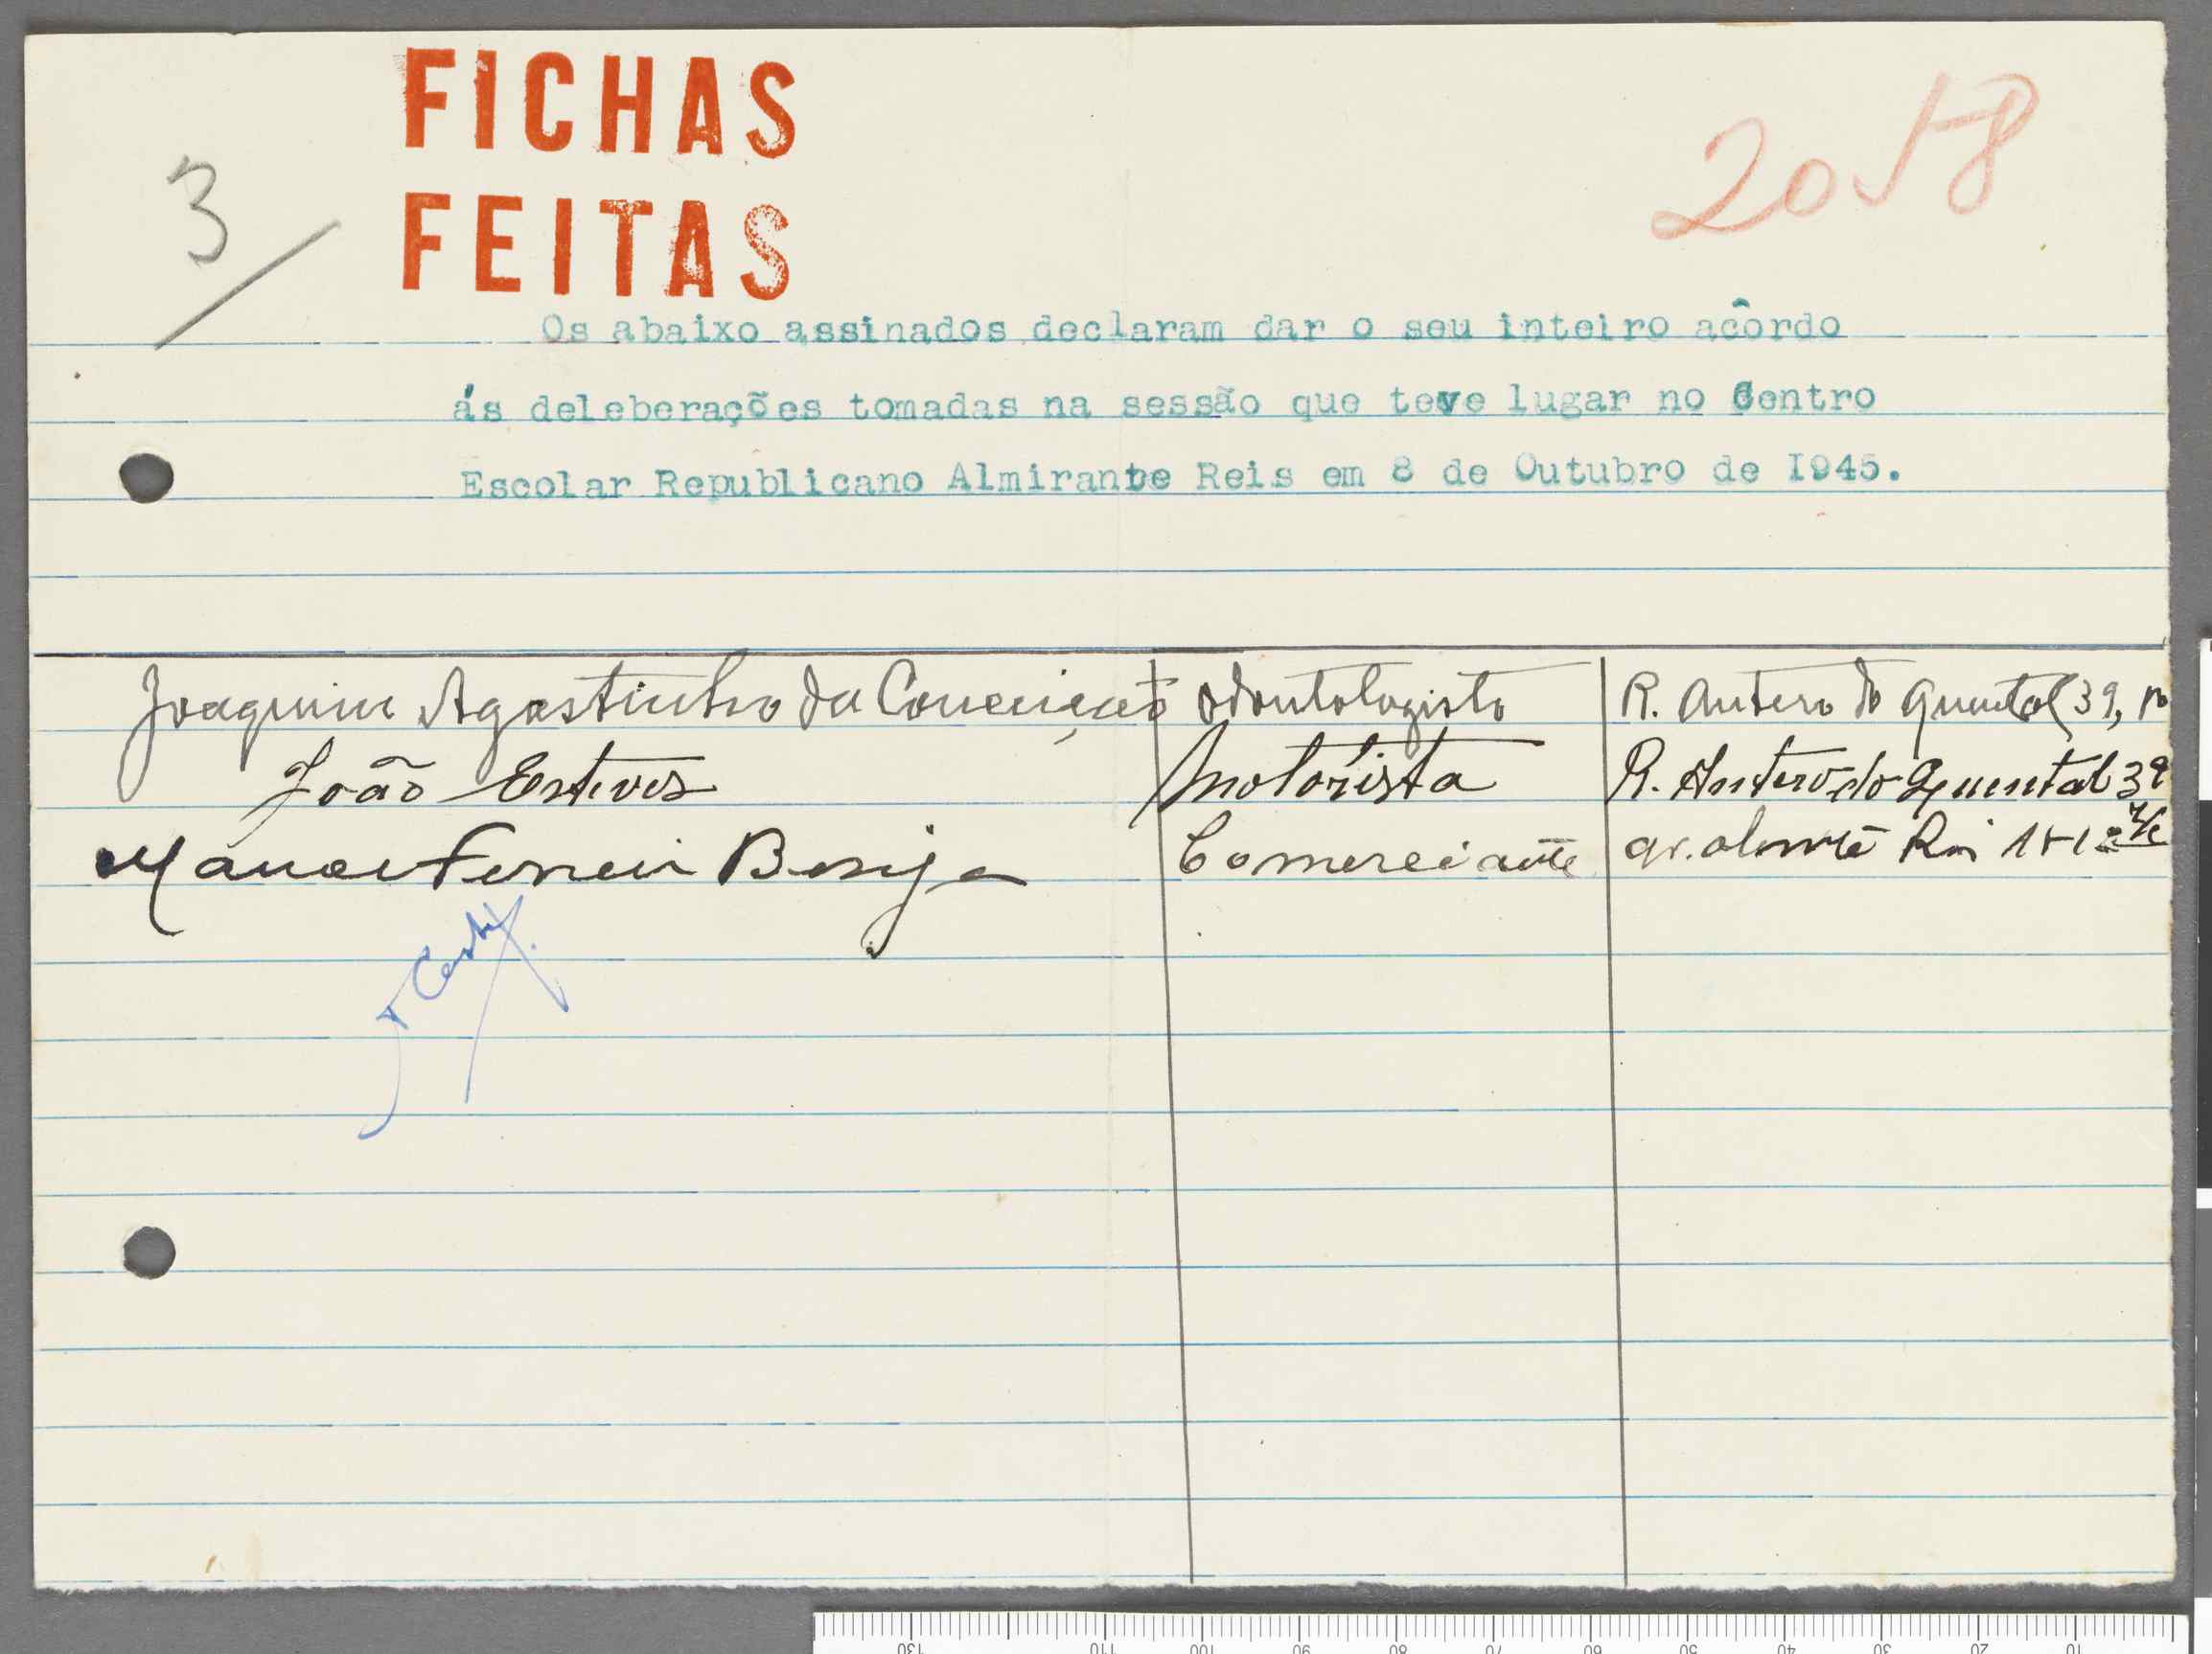 FICHAS
FEITAS
3
2058
Os abaixo assinados declaram dar o seu inteiro acôrdo
ás deleberações tomadas na sessão que teve lugar no Centro
Escolar Republicano Almirante Reis em 8 de Outubro de I945.
Joaquim Agostinho da Conceição odontologista R. Antero do Quental 39,
João Esteves Motorista R. Antero do Quental 39
Manoel Ferreira Comerciante Av. Almte Reis
130 110 100 90 80 70 60 50 40 30 20 10